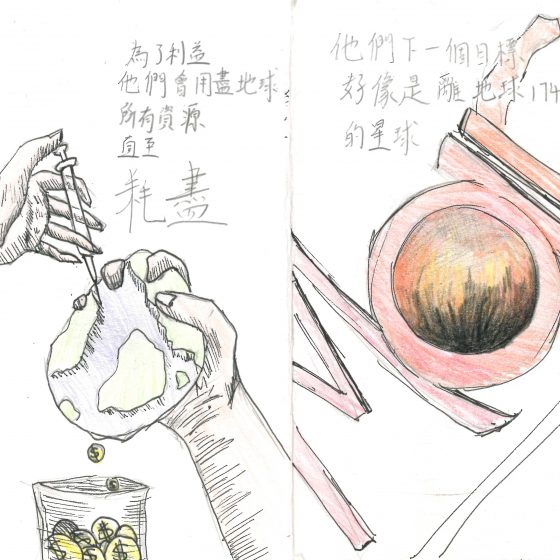 為了利益
他們會用盡地球
所有資源
直至
耗盡
他們下一個目標
好像是離地球174
的星球
$
$
$
$
$